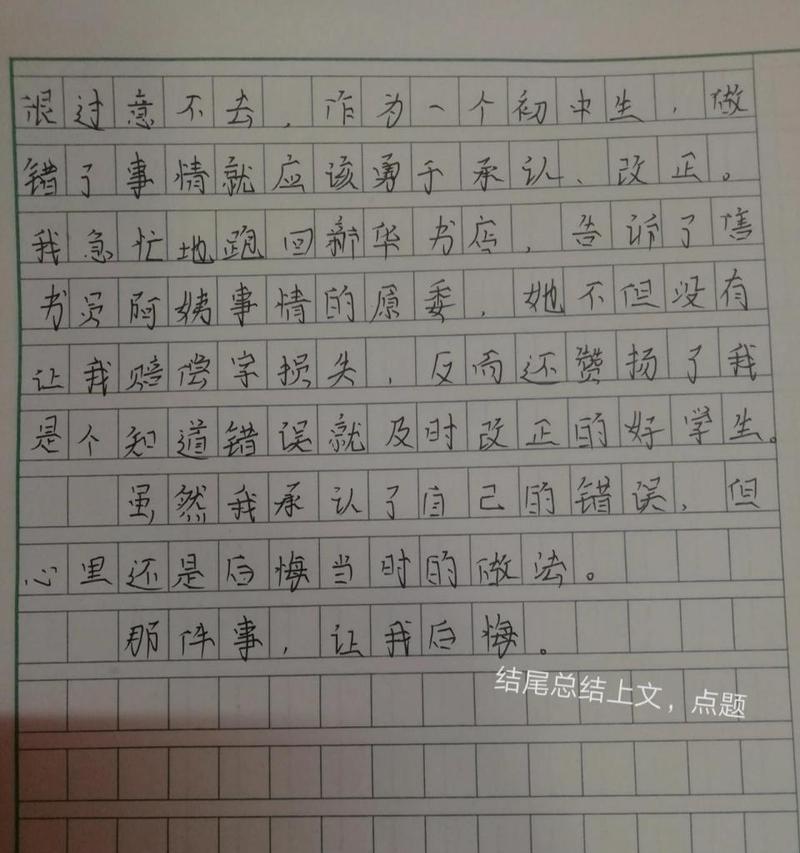 很过意不去，作为一个初中生，做
错了事情就应该勇于承认、改正。
我急忙地跑回新华书店，告诉了售
书员阿姨事情的原委，她不但没有
让我赔偿字损失，反而还赞扬了我
是个知道错误就及时改正的好学生。
虽然我承认了自己的错误，但
心里还是后悔当时的做法。
那件事，让我后悔。
结尾总结上文，点题